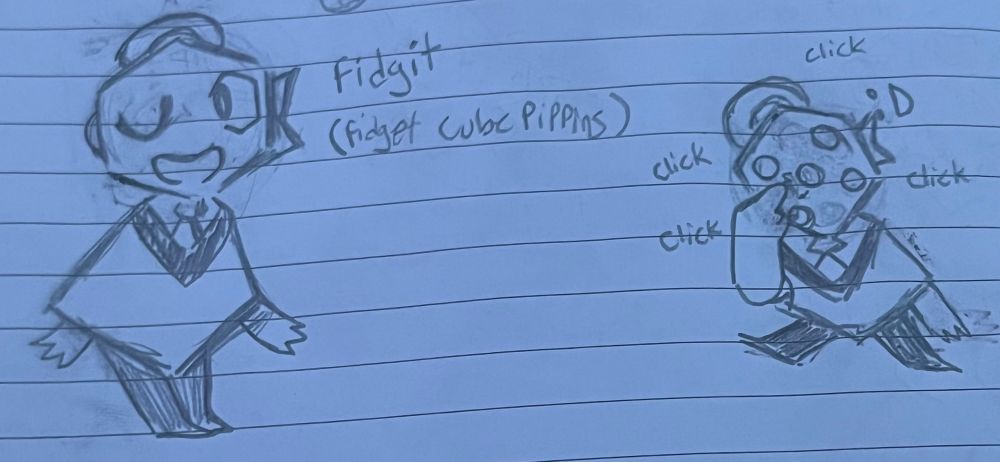 Fidgit
(Fidget Cube Pippins)
click
:D
click
click
click